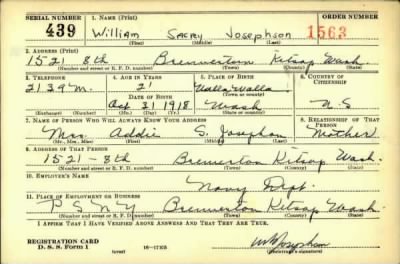 SERIAL NUMBER 1. NAME (Print) ORDER NUMBER
439 William Sacry Josephson 1563
(First) (Middle) (Last)
2. ADDRESS (Print)
1521 8th Bremerton Kitsap Wash.
(Number and street or R. F. D. number) (Town) (County) (State)
3. TELEPHONE 4. AGE IN YEARS 5. PLACE OF BIRTH 6. COUNTRY OF CITIZENSHIP
2139M. 21 Walla Walla
DATE OF BIRTH (Town or county)
Oct 31 1918 Wash U.S
(Exchange) (Number) (Mo.) (Day) (Yr.) (State or country)
7. NAME OF PERSON WHO WILL ALWAYS KNOW YOUR ADDRESS 8. RELATIONSHIP OF THAT PERSON
Mrs. Addie S. Josephson Mother
(Mr., Mrs., Miss) (First) (Middle) (Last)
9. ADDRESS OF THAT PERSON
1521 - 8th Bremerton Kitsap Wash.
(Number and street or R. F. D. number) (Town) (County) (State)
10. EMPLOYER'S NAME
Navy Dept.
11. PLACE OF EMPLOYMENT OR BUSINESS
P S N Y Bremerton Kitsap Wash.
(Number and street or R. F. D. number) (Town) (County) (State)
I AFFIRM THAT I HAVE VERIFIED ABOVE ANSWERS AND THAT THEY ARE TRUE.
REGISTRATION CARD
D. S. S. Form 1 (over) 16-17105 Josephson
(Registrant's signature)